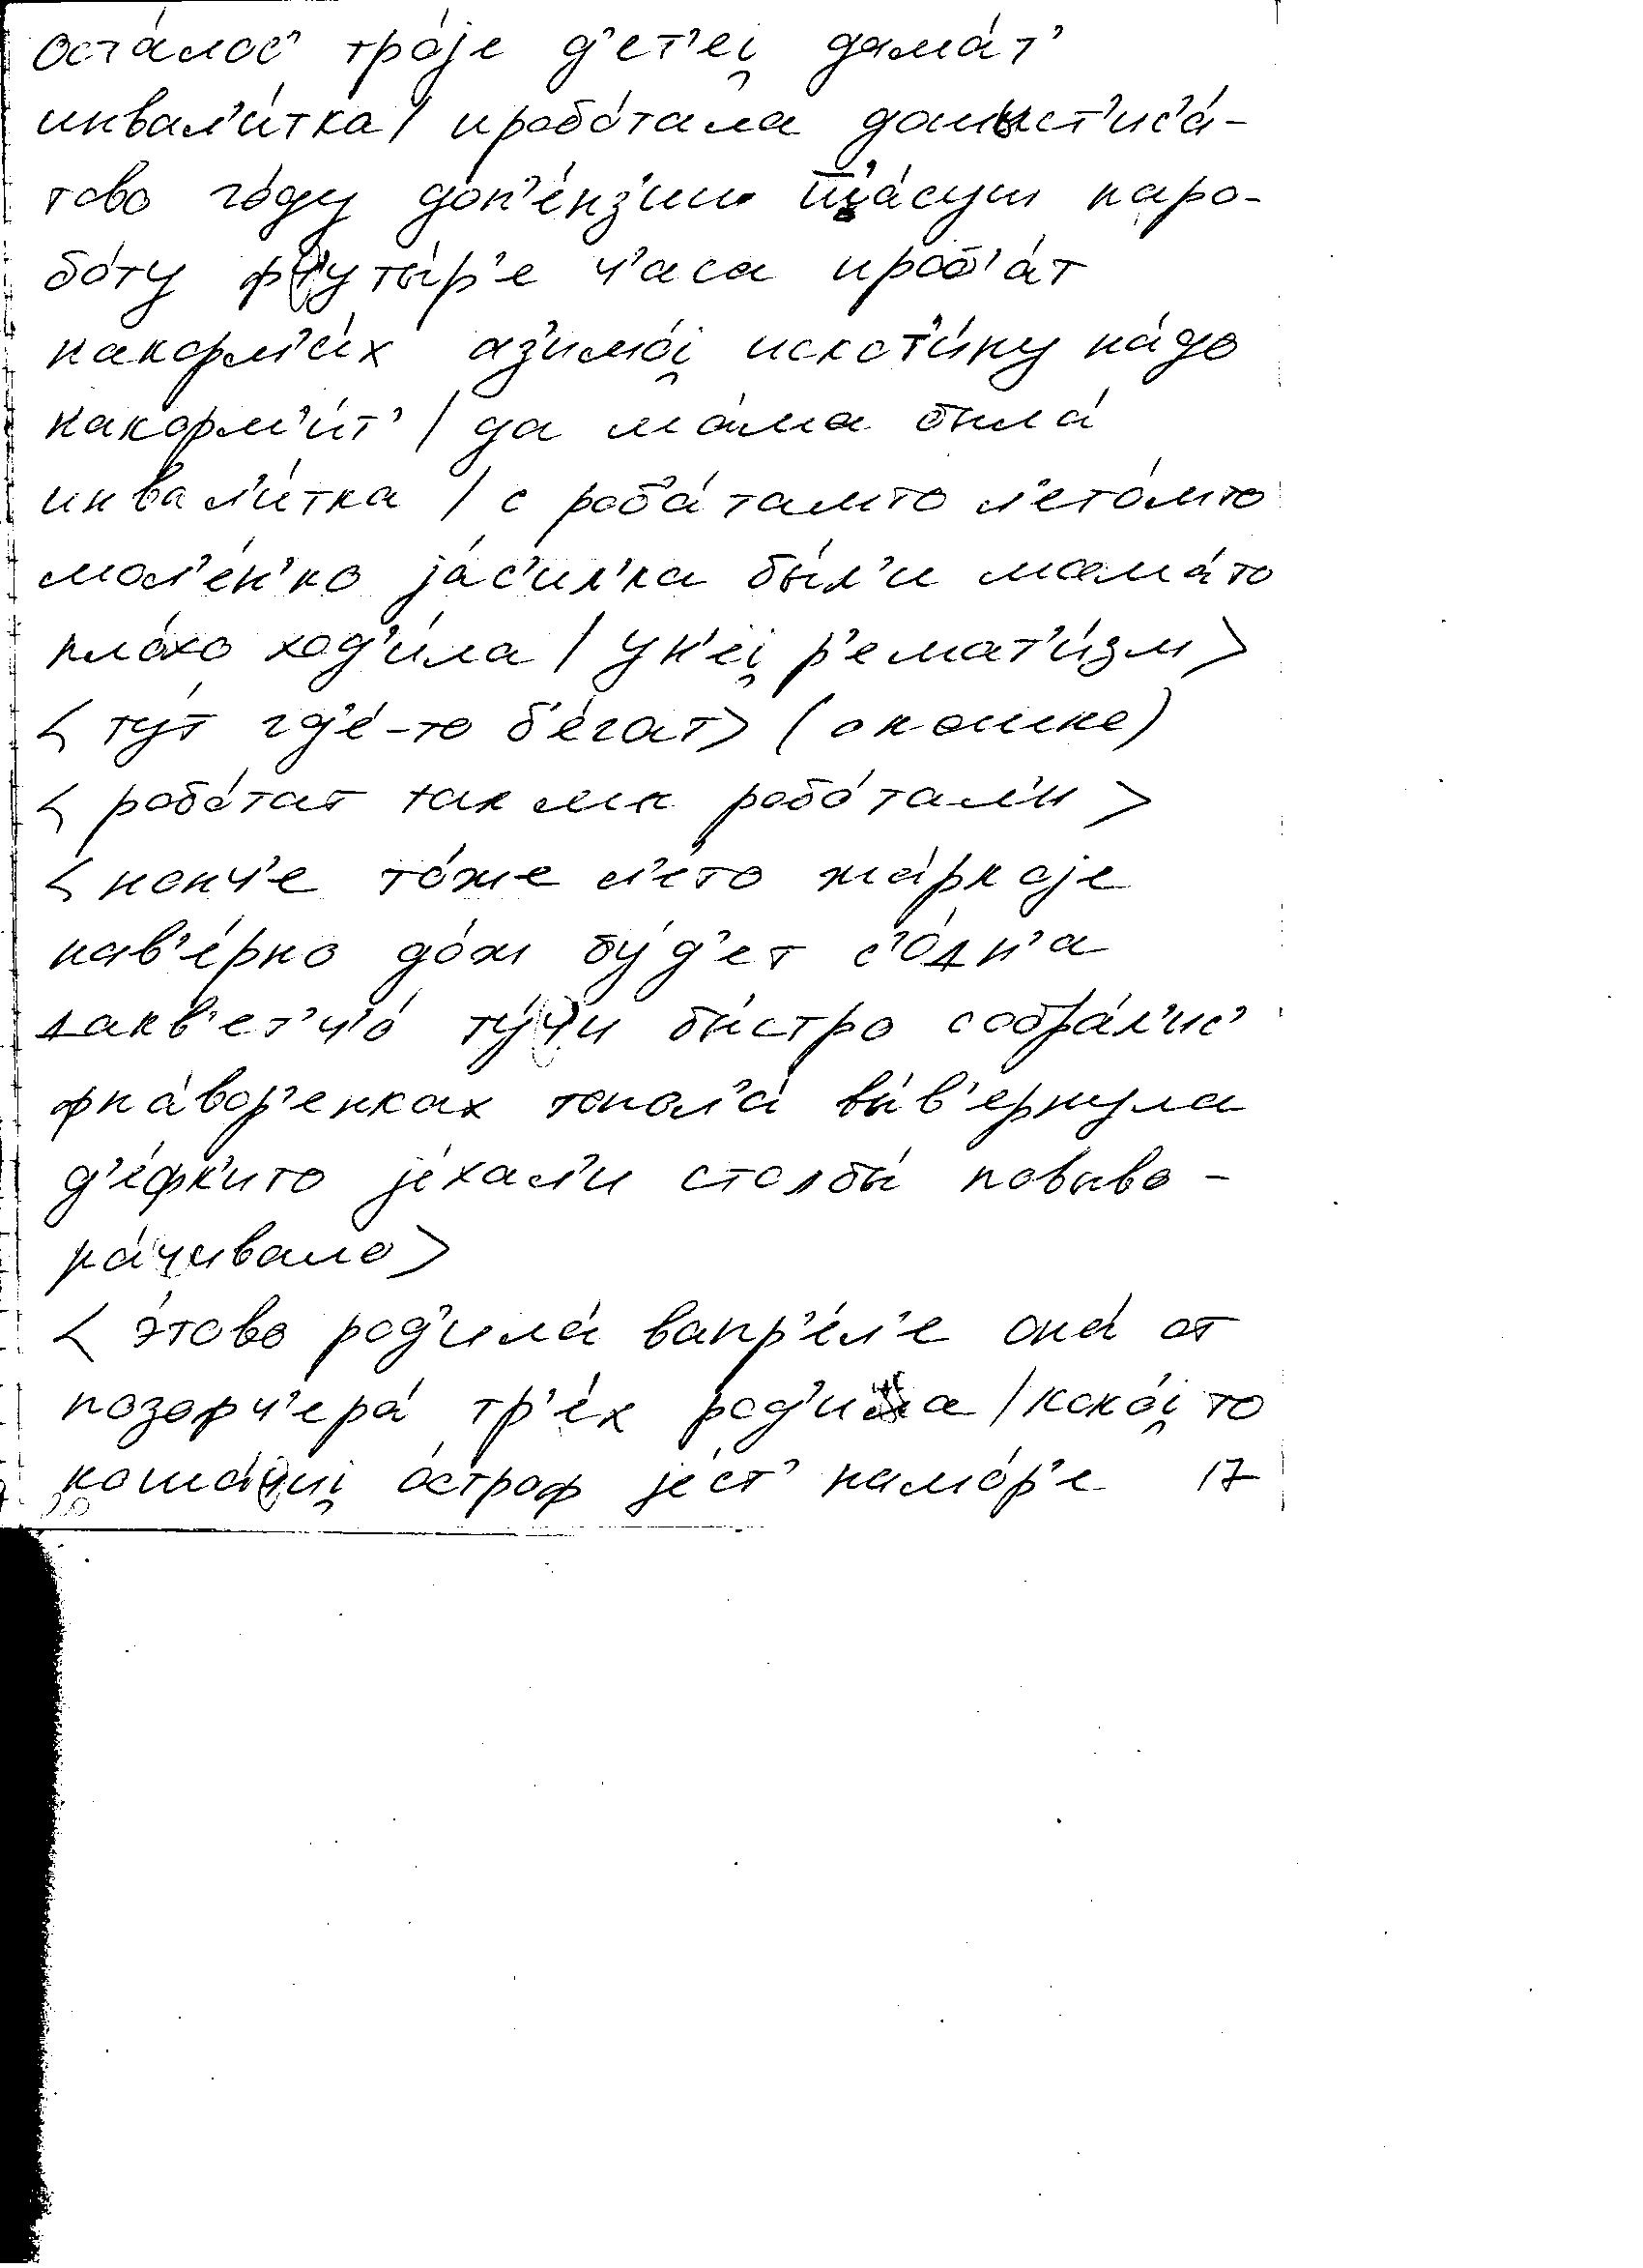 оста́лос’ тро́jе д’ет’еi̯ дама́т’
инвал’и́тка / ирабо́тала дашыст’ис’а́-
тово го́ду доп’е́нз’ии шʼа́сум наро-
бо́ту фчʼуты́р’е ч’аса ироб’а́т
накорм’и́х аз’имо́i̯ искот’и́ну на́до
накорм’и́т’ / да ма́ма была́
инвал’и́тка / с роб’а́тамто л’ето́мто
мал’е́н’ко jа́с’ил’ка бы́л’и мама́то
пло́хо ход’и́ла / ун’еi̯ р’емат’и́зм >
< ту́т гд’е́-то б’е́гат > (о кошке)
< робо́тат так мы робо́тал’и >
< нонч’е то́же л’е́то жа́ркоjе
нав’е́рно до́ж бу́д’ет с’о́дн’а
дакв’ет’ч’о́ ту́чи бы́стро собра́л’ис’
фна́вор’енках топол’а́ вы́в’ернула
д’е́фк’ито jе́хал’и столбы́ повыво-
ра́чивало >
< э́тово род’ила́ вапр’е́л’е она́ от
позафч’ера́ тр’е́х род’ила / како́i̯ то
коша́чиi̯ о́строф jе́ст’ намо́р’е 17